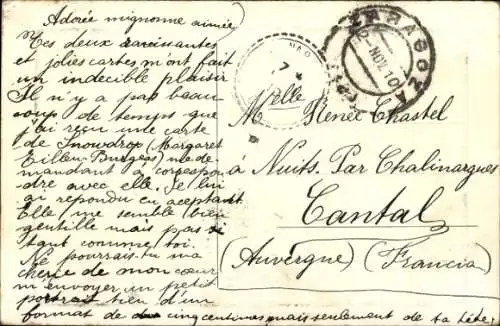 Adorée mignonne aimée,
Tes deux ravissantes
et jolies cartes m'ont fait
un indecible plaisir
Il n'y a pas beau
coup de temps que
j'ai reçu une carte
de Snowdrop (Margaret
Burgess) me de-
mandant a correspo
dre avec elle. Je lui
ai repondu en aceptant
Elle me semble bien
gentille mais pas si
tant comme toi.
Ne pourrais-tu ma
cherie de mon cœur
m'envoyer un petit
portrait bien d'un
format de cinq centimes mais seulement de ta tête;
ZARAGOZA
NOV 10
Melle Renée Chastel
à Nuits. Par Chalinargues
Cantal
(Auvergne) (Francia)